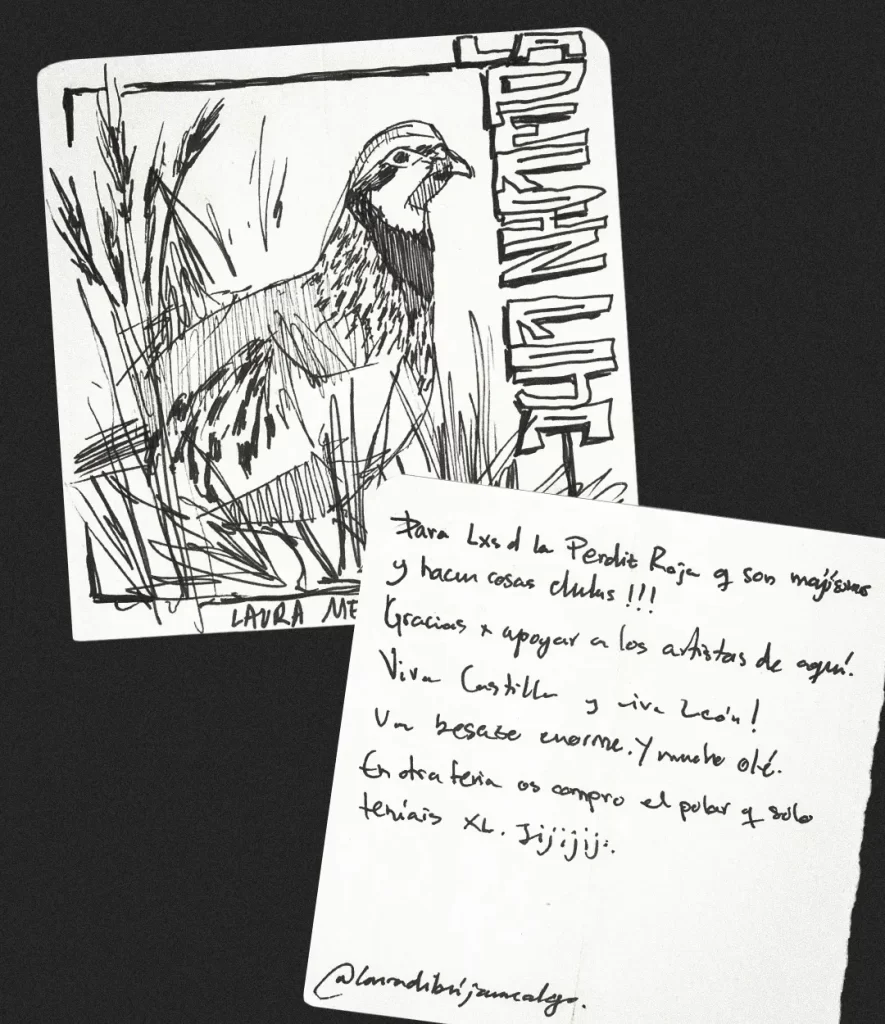 LAURA ME
Para Lxs d la Perdiz Roja q son majísimxs
y hacen cosas chulas !!!
Gracias x apoyar a los artistas de aquí.
Viva Castilla y viva León!
Un besazo enorme. Y mucho olé.
En otra feria os compro el polar q sólo
teníais XL. Jijijiji.